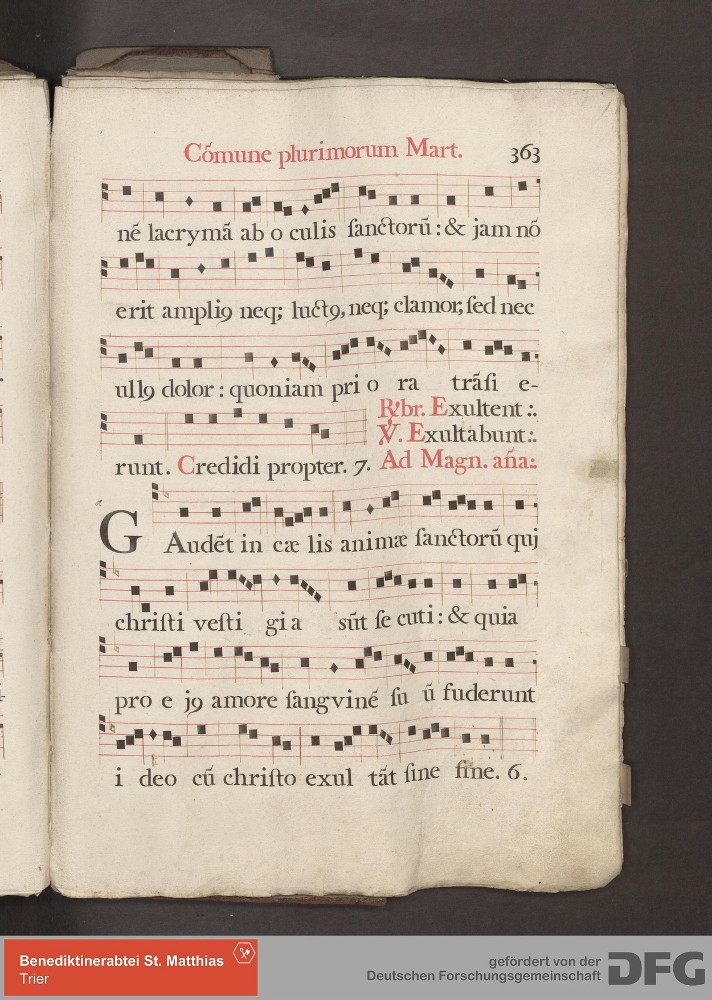 Cõmune plurimorum Mart. 363
nẽ lacrymã ab o culis ſanctorũ : & jam nõ
erit ampliꝰ neq; luctꝰ, neq; clamor, ſed nec
ullꝰ dolor : quoniam pri o ra trãſi e-
R̷br. Exultent :.
runt. Credidi propter. 7.
V̷. Exultabunt :.
Ad Magn. añа:.
GAudẽt in cæ lis animæ ſanctorũ quj
chriſti veſti gi a sũt ſe cuti : & quia
pro e jꝰ amore ſangvinẽ ſu ũ fuderunt
i deo cũ chriſto exul tãt ſine fine. 6.
Benediktinerabtei St. Matthias
Trier
gefördert von der
Deutschen Forschungsgemeinschaft
DFG